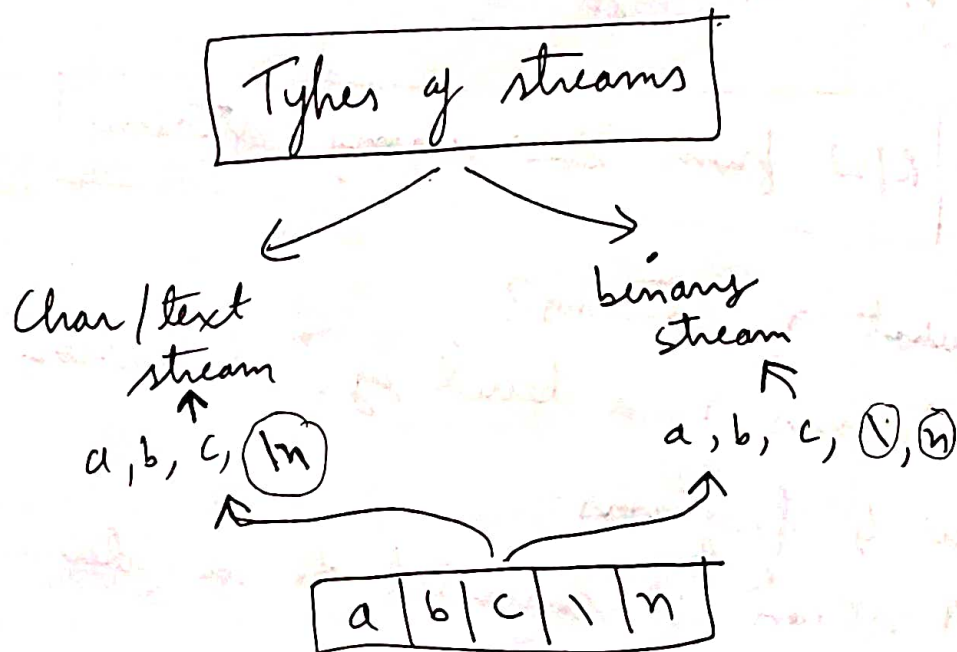 Types of streams
Char/text
stream
binary
stream
a, b, c, \n
a, b, c, \, n
a b c \ n